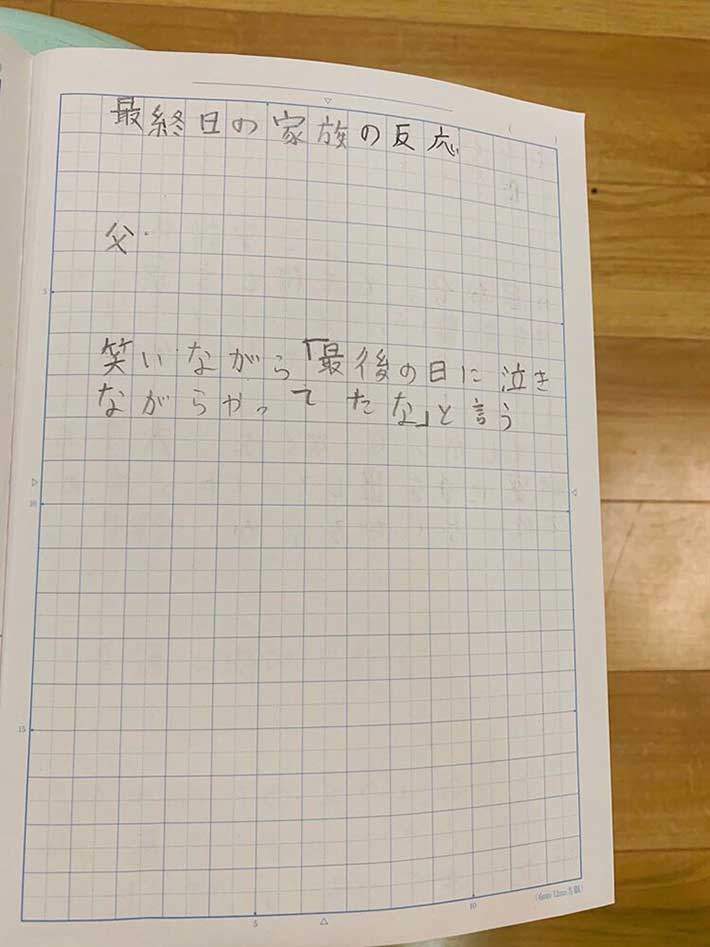 最終日の家族の反応
父
笑いながら「最後の日に泣き
ながらやってたな」と言う
5
10
15
5
10